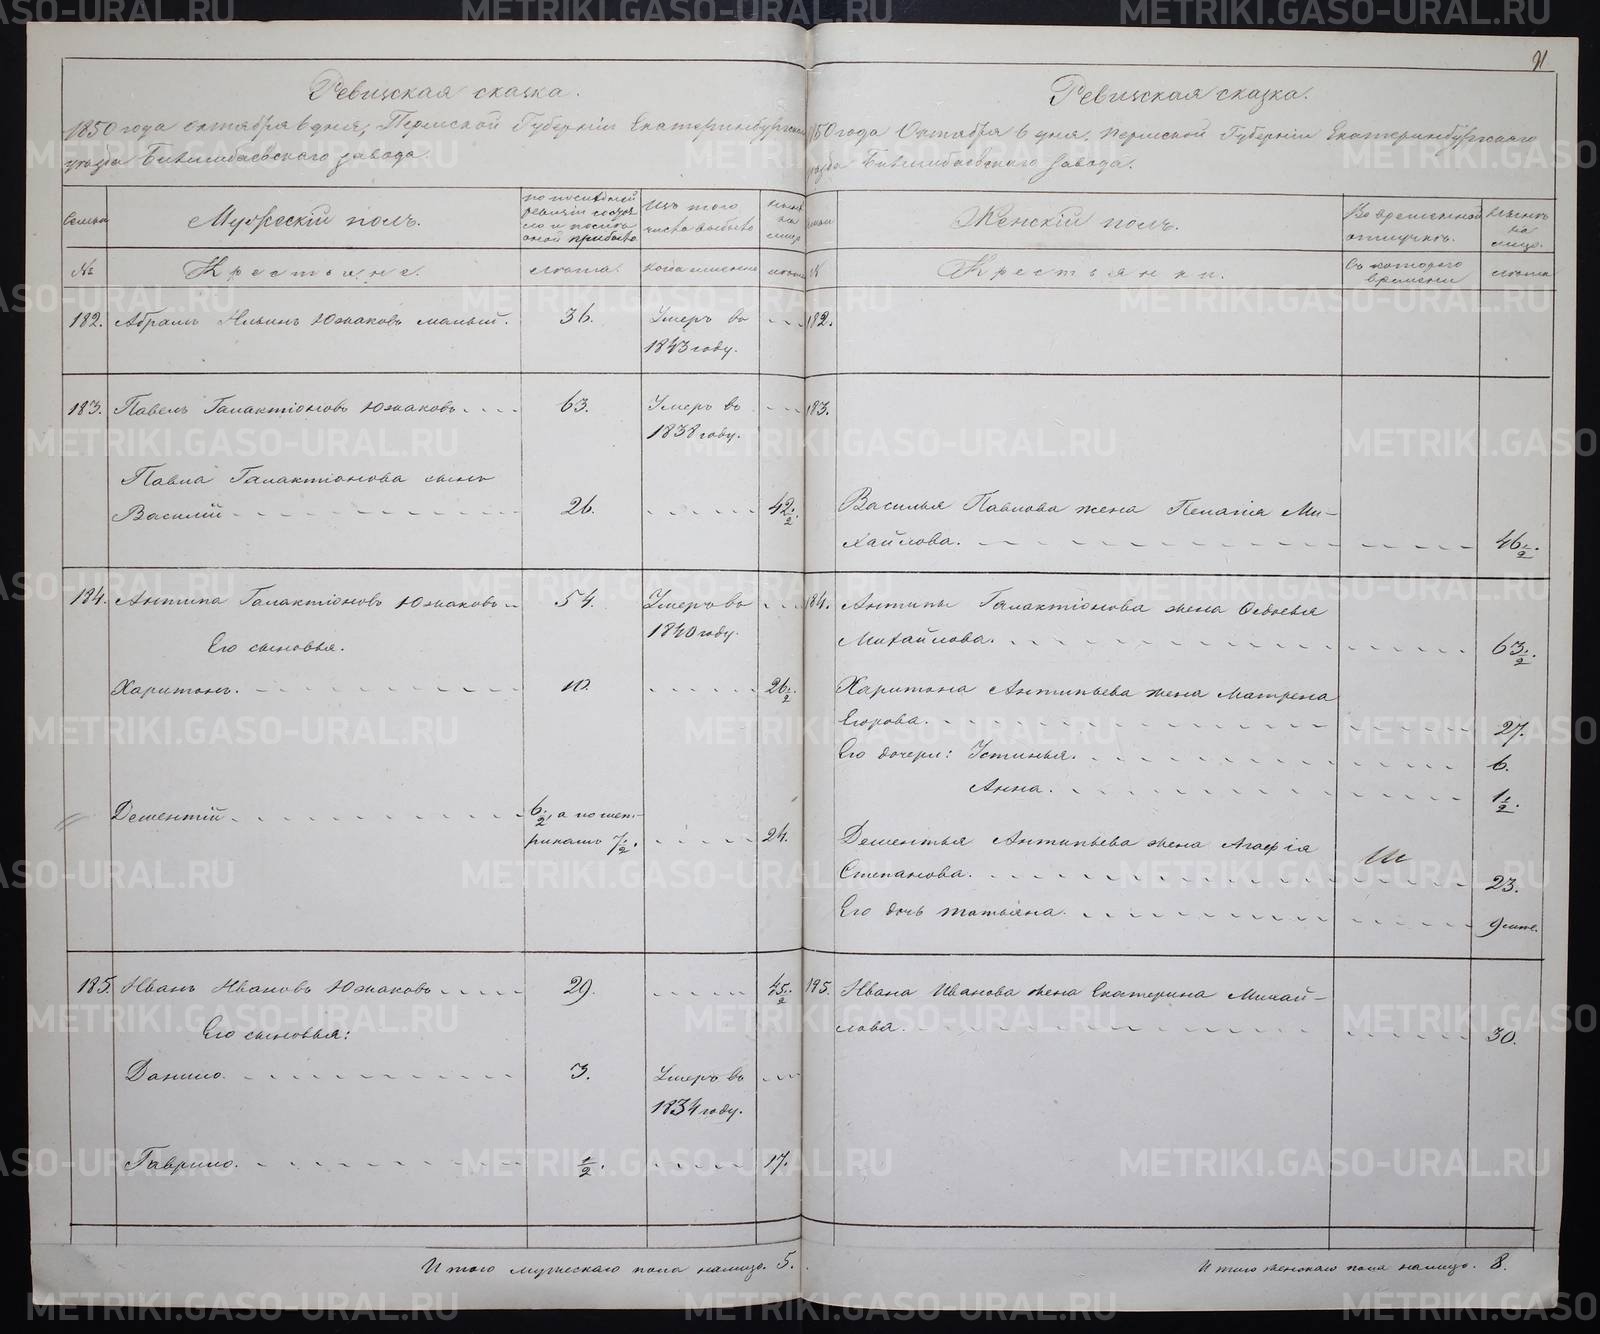 21
Ревизская сказка.
1850 года октября 6 дня, Пермской Губерніи Екатеринбургскаго
уѣзда Билимбаевскаго завода.
Семьи
Мужескій полъ.
по последней ревизіи состояло и после оной прибыло
Изъ того числа выбыло
ныне на лицо
№
Крестьяне.
лѣта.
когда именно
лѣта
182. Абрамъ Ильинъ Южаковъ малый. 36. Умеръ въ
1843 году.
183. Павелъ Галактіоновъ Южаковъ 63. Умеръ въ
1838 году.
Павла Галактіонова сынъ
Василій 26. 42 1/2.
184. Антипа Галактіоновъ Южаковъ 54. Умеръ въ
1840 году.
Его сыновья.
Харитонъ. 10. 26 1/2.
Дементій 6 1/2, а по мет-
рикамъ 7 1/2. 24.
185. Иванъ Ивановъ Южаковъ 29. 45 1/2
Его сыновья:
Данило. 3. Умеръ въ
1834 году.
Гаврило. 1/2. 17.
Итого мужескаго пола налицо. 5.
Ревизская сказка.
1850 года Октября 6 дня, Пермской Губерніи Екатеринбургскаго
уѣзда Билимбаевскаго завода.
Семьи
Женскій полъ.
Во временной отлучкѣ.
Нынѣ на лицо.
№
Крестьянки.
съ котораго времени
лѣта
182.
183.
Василья Павлова жена Пелагія Ми-
хайлова. 46 1/2.
184. Антипы Галактіонова жена Овдотья
Михайлова. 63 1/2.
Харитона Антипьева жена Матрена
Егорова. 27.
Его дочери: Устинья. 6.
Анна. 1 1/2.
Дементья Антипьева жена Агафія
Степанова. 23.
Его дочь Татьяна. 9 мѣс.
185. Ивана Иванова жена Екатерина Михай-
лова. 30.
Итого женскаго пола налицо. 8.
METRIKI.GASO-URAL.RU